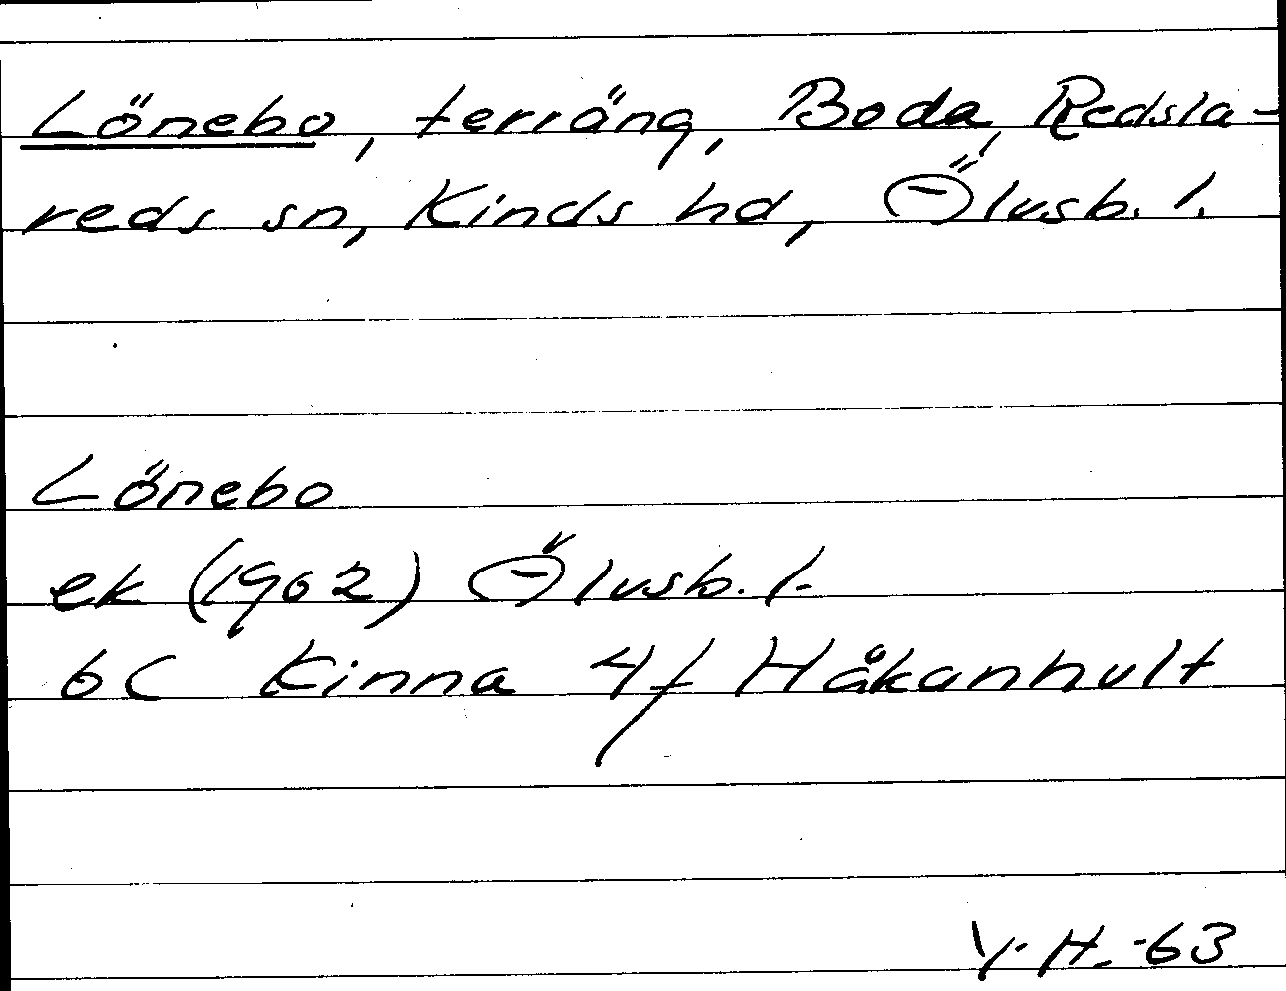 Lönebo, terräng, Boda, Redsla-
reds sn, Kinds hd, Älvsb. l.
Lönebo
ek (1902) Älvsb. l.
6C Kinna 4f Håkanhult
V. H. -63